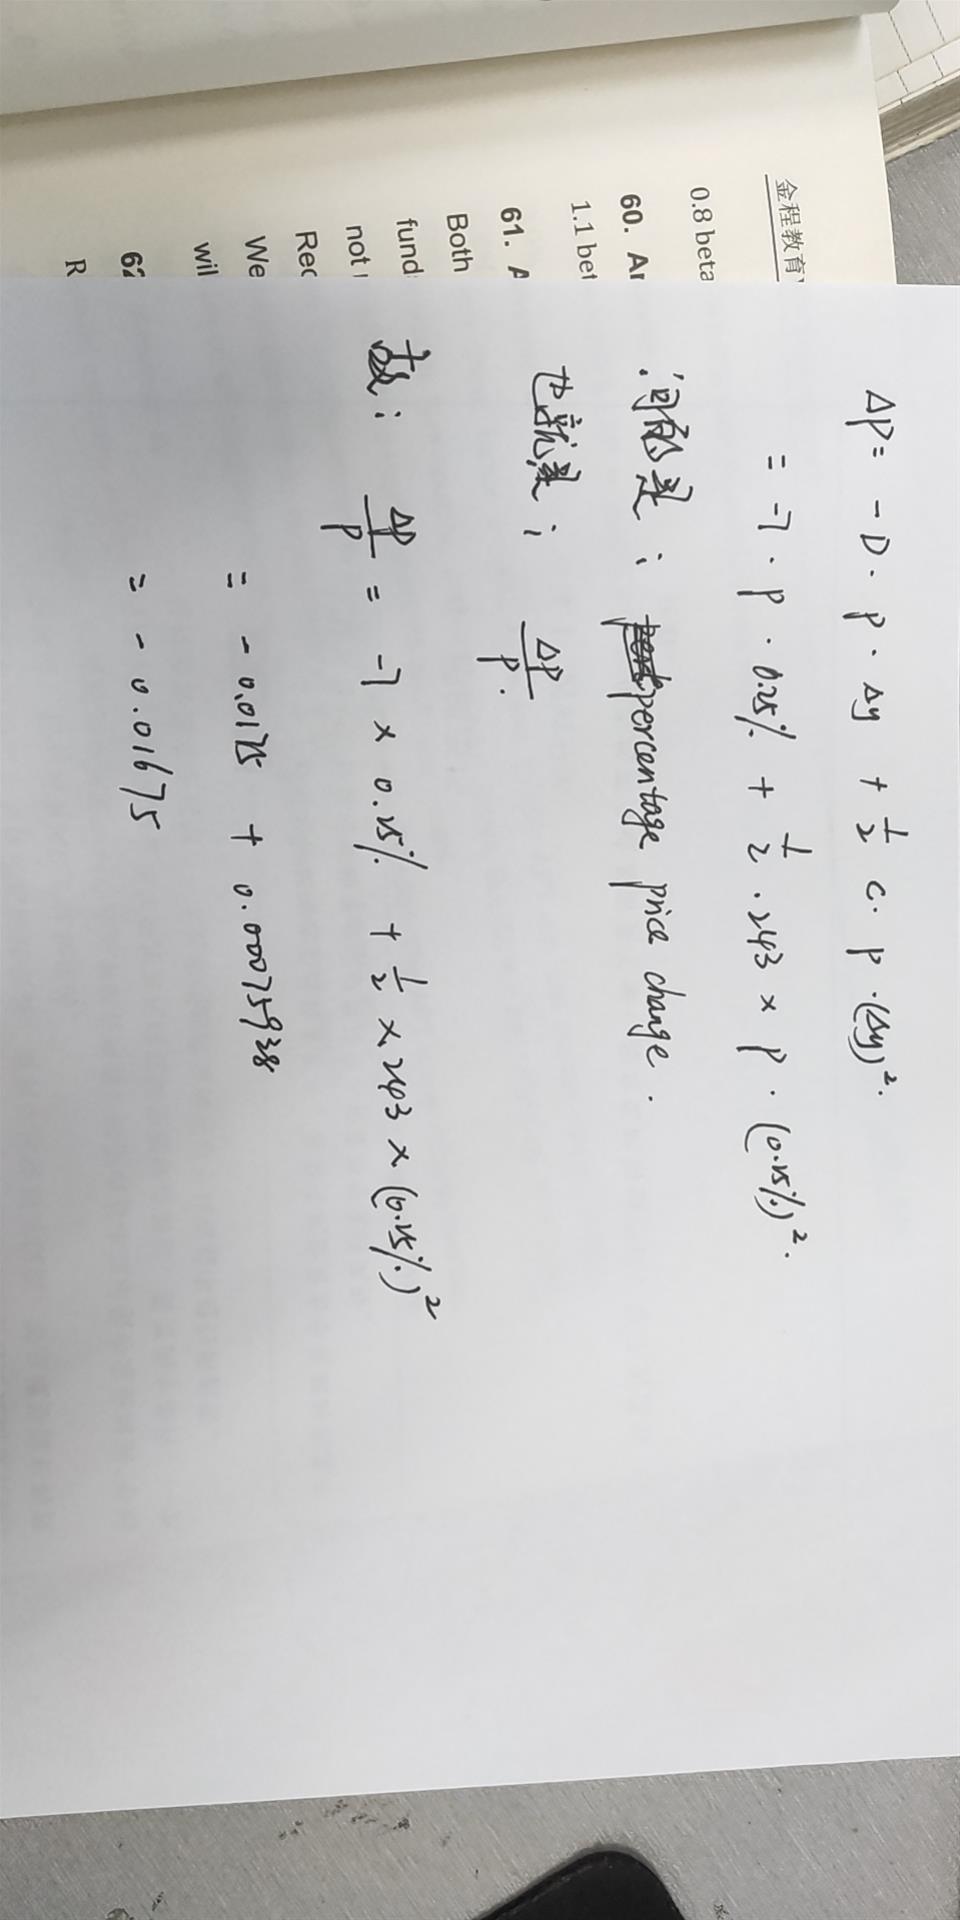 金程教育
0.8 beta
60. Ar
1.1 bet
61. A
Both
fund
not
Rec
We
wil
62
R
ΔP = -D · P · Δy + 1/2 C · P · (Δy)².
= -7 · P · 0.25% + 1/2 · 243 × P · (0.25%)².
问的是： percentage price change .
也就是： ΔP/P .
故： ΔP/P = -7 × 0.25% + 1/2 × 243 × (0.25%)²
= - 0.0175 + 0.00075938
= - 0.01675